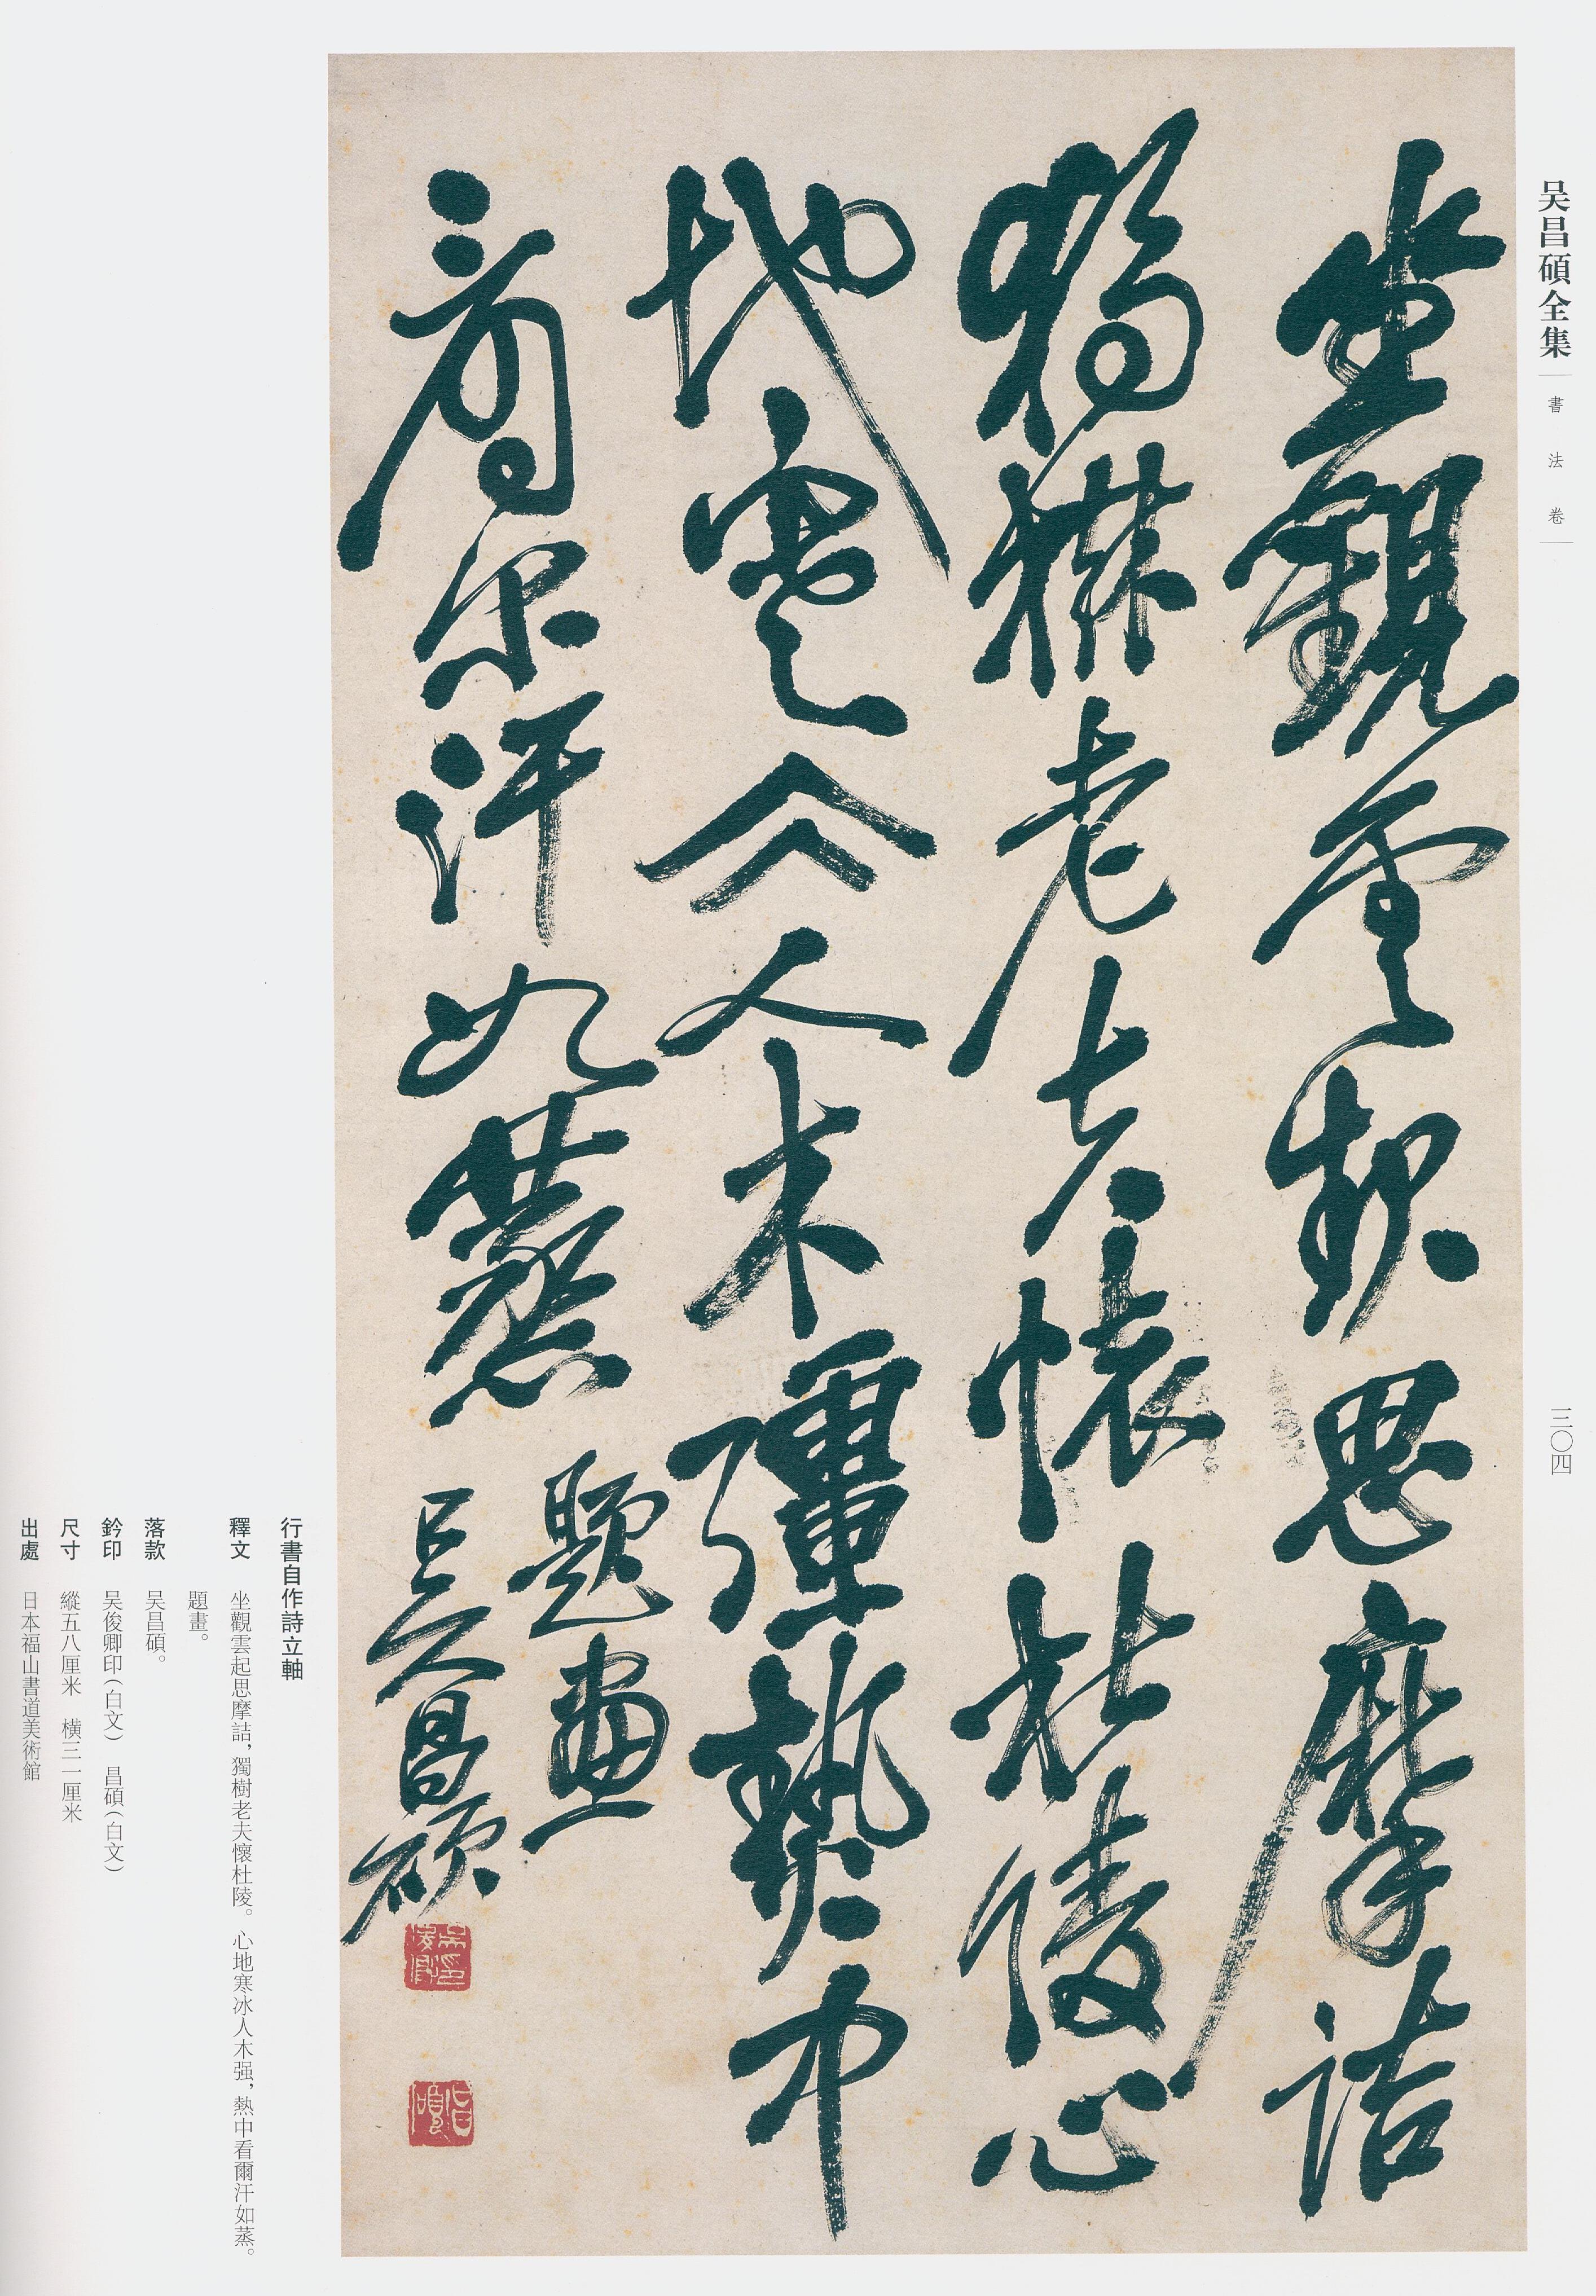 吴昌碩全集
書法卷
三〇四
坐觀雲起思摩詰
獨樹老夫懷杜陵心
地寒仌人木彊熱中
看尔汗如蒸
題畫
吴昌碩
吴俊卿印
昌碩
行書自作詩立軸
釋文 坐觀雲起思摩詰，獨樹老夫懷杜陵。心地寒冰人木强，熱中看爾汗如蒸。
題畫。
落款 吴昌碩。
鈐印 吴俊卿印（白文） 昌碩（白文）
尺寸 縱五八厘米 橫三一厘米
出處 日本福山書道美術館